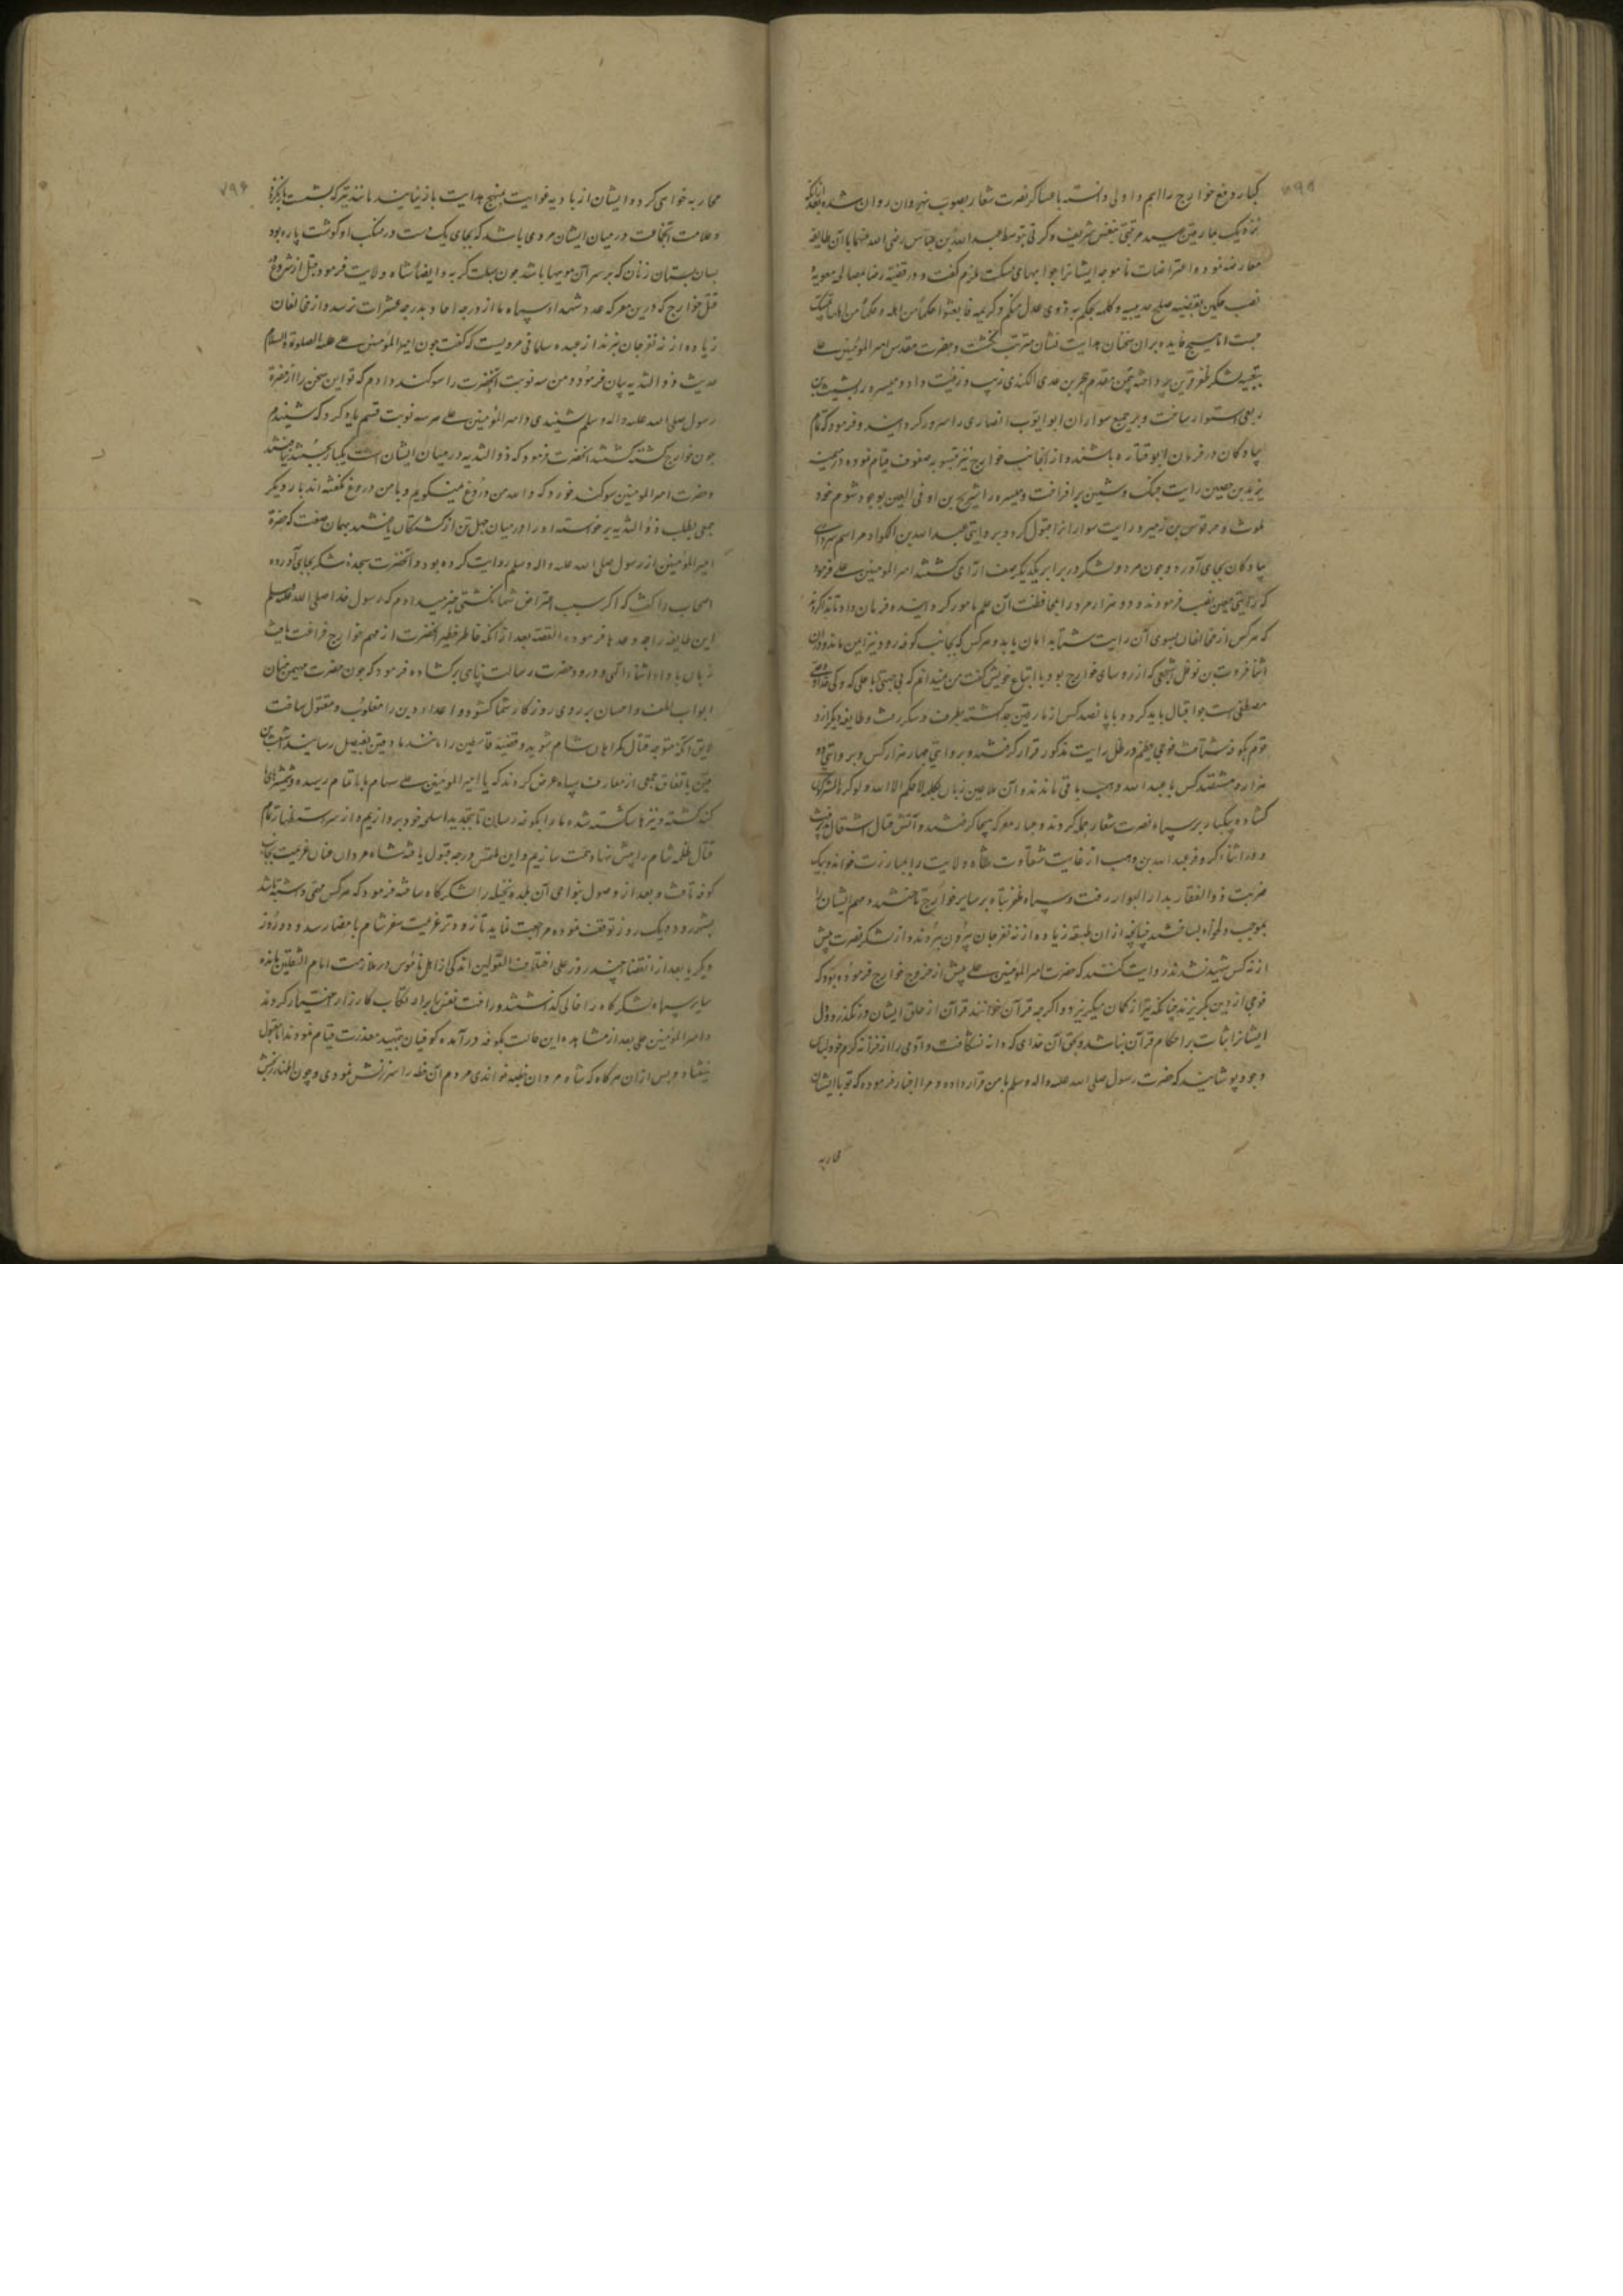 کبار دفع خوارج را اهم و اولی دانسته با عساکر نصرت شعار بصوب نهروان روان شده بعد ازانکه
نزدیک بمارقین رسید مرتبتی بنفس شریف و کرتی بتوسط عبدالله بن عباس رضی الله عنهما با آن طایفه
معارضه نموده و اعتراضات ناموجه ایشانرا جوابهای مسکت ملزم گفت و در قضیه رضا بمصالحه معویه
نصب حکمین بقضیه صلح حدیبیه و کلمه یحکم به ذوی عدل منکم و کریمه فابعثوا حکما من اهله و حکما من اهلها تمسک
جست اما هیچ فایده بران سخنان هدایت نشان مترتب نکشت و حضرت مقدس امیرالمؤمنین علی
بتعبیه لشکر ظفر قرین پرداخته میمنه بحجر بن عدی الکندی زیب و زینت داد و میسره را بشبث بن
ربعی استوار ساخت و بر جمیع سواران ابو ایوب انصاری را سرور کردانید و فرمود که تمام
پیادکان در فرمان ابو قتاده باشند و از آنجانب خوارج نیز بتسویه صفوف قیام نموده در میمنه
یزید بن حصین رایت جنک و شین برافراخت و میسره را شریح بن اوفی العبسی بوجود شوم خود
ملوث ساخته حرقوص بن زهیر رایت سوارانرا قبول کرد و بروایتی عبدالله بن الکوا مراسم سرداری
پیادکان بجای آورد و چون هر دو لشکر در برابر یکدیگر صف آرای کشتند امیرالمؤمنین علی فرمود
که رایتی معین نصب فرمودند و دو هزار مرد را بمحافظت آن علم مامور کردانید و فرمان داد تا ندا کردند
که هر کس از مخالفان بسوی آن رایت شتابد امان یابد و هر کس که بجانب کوفه رود نیز ایمن ماند و دران
اثنا فروة بن نوفل اشجعی که از روسای خوارج بود با اتباع خویش گفت من نمیدانم که بچه حجتی با علی که ولی خدا و وصی
مصطفی است چرا قتال باید کرد و با پانصد کس از مارقین جدا کشته بطرف دسکره رفت و طایفه دیگر از آن
قوم بکوفه شتافت و فوجی عظیم در ظل رایت مذکور قرار گرفتند و بروایتی چهار هزار کس و بروایتی دو
هزار و هشتصد کس با عبدالله وهب باقی ماندند و آن ملاعین زبان بکلمه لا حکم الا لله ولو کره المشرکون
گشاده بیکبار بر سپاه نصرت شعار حمله کردند و غبار معرکه هیجا برخاسته و آتش قتال اشتعال پذیرفت
و در اثناء کر و فر عبدالله بن وهب از غایت شقاوت شاه ولایت را بمبارزت خواند و بیک
ضربت ذوالفقار بدارالبوار رفت و سپاه ظفر پناه بر سایر خوارج تاختند و مهم ایشان را
بموجب دلخواه بساختند چنانچه از ان طبقه زیاده از نه نفر جان بیرون نبردند و از لشکر نصرت پیش
از نه کس شهید نشدند روایت کنند که حضرت امیرالمؤمنین علی پیش از خروج خوارج فرموده بود که
قومی از دین بگریزند چنانکه تیر از کمان میگریزد و اگرچه قرآن خوانند قرآن از حلق ایشان در نگذرد و دل
ایشانرا ثبات بر احکام قرآن نباشد و بحق آن خدای که دانه شکافت و آدمی را از خزانه کرم خود لباس
وجود پوشانید که حضرت رسول صلی الله علیه و اله وسلم با من قرار داده و مرا اخبار فرموده که تو با ایشان
محاربه
۷۹۶
محاربه خواهی کرد و ایشان از بادیه غوایت بمنهج هدایت باز نیایند مانند تیر که بشست باز نکردد
و علامت آنجماعت در میان ایشان مردی باشد که بجای یک دست در منکب او گوشت پاره بود
بسان پستان زنان که بر سر آن مویها باشد چون سبلت گربه و ایضا شاه ولایت فرمود قبل از شروع در
قتل خوارج که درین معرکه عدد شهدا از سپاه ما از درجه احاد بدرجه عشرات نرسد و از مخالفان
زیاده از نه نفر جان نبرند از عبیده سلمانی مرویست که گفت چون امیرالمؤمنین علی علیه الصلوة والسلام
حدیث ذوالثدیه بیان فرمود من سه نوبت آنحضرت را سوکند دادم که تو این سخن را از حضرة
رسول صلی الله علیه و اله وسلم شنیدی و امیرالمؤمنین علی هر سه نوبت قسم یاد کرد که شنیدم
چون خوارج کشته کشتند آنحضرت فرمود که ذوالثدیه در میان ایشان است یکبار بجستند نیافتند
و حضرت امیرالمؤمنین سوکند خورد که والله من دروغ نمیگویم و با من دروغ نگفته اند بار دیگر
جمعی بطلب ذوالثدیه برخواسته او را در میان چهل تن از کشتگان یافتند بهمان صفت که حضرة
امیرالمؤمنین از رسول صلی الله علیه و اله وسلم روایت کرده بود و آنحضرت سجده شکر بجای آورده
اصحاب را گفت که اگر سبب اعتراض شما نگشتی خبر میدادم که رسول خدا صلی الله علیه وسلم
این طایفه را چه وعدها فرموده القصه بعد ازانکه خاطر خطیر آنحضرت از مهم خوارج فراغت یافت
زبان باداء ثناء الهی و درود حضرت رسالت پناهی برکشاده فرمود که چون حضرت مهیمن منان
ابواب لطف و احسان بر روی روزکار شما کشود و اعداء دین را مغلوب و مقتول ساخت
لایق آنکه متوجه قتال کمراهان شام شوید و قضیه قاسطین را مانند مارقین بفیصل رسانید اشعث بن
قیس باتفاق جمعی از معارف سپاه عرض کردند که یا امیرالمؤمنین علی سهام ما باتمام رسیده و شمشیرهای
کند کشته و نیزها شکسته شده ما را بکوفه رسان تا بتجدید اسلحه خود پردازیم و از سر استظهار تمام
قتال ظلمه شام را پیش نهاد همت سازیم و این ملتمس درجه قبول یافته شاه مردان عنان عزیمت بجانب
کوفه تافت و بعد از وصول بنواحی آن بلده نخیله را لشکرگاه ساخته فرمود که هر کس مهمی داشته باشد
بشهر رود و یک روز توقف نموده مراجعت نماید تا زودتر عزیمت سفر شام بامضا رسد و دو روز
دیگر یا بعد از انقضا چند روز علی اختلاف القولین اندکی از اهل ناموس در ملازمت امام الثقلین مانده
سایر سپاه لشکرگاه را خالی گذاشتند و رافت نفس را بر ارتکاب کارزار اختیار کردند
و امیرالمؤمنین علی بعد از مشاهده این حالت بکوفه درآمده کوفیان بتمهید معذرت قیام نمودند اما قبول
نیفتاد و پس ازان هرگاه که شاه مردان خطبه خواندی مردم آن خطه را سرزنش نمودی و چون